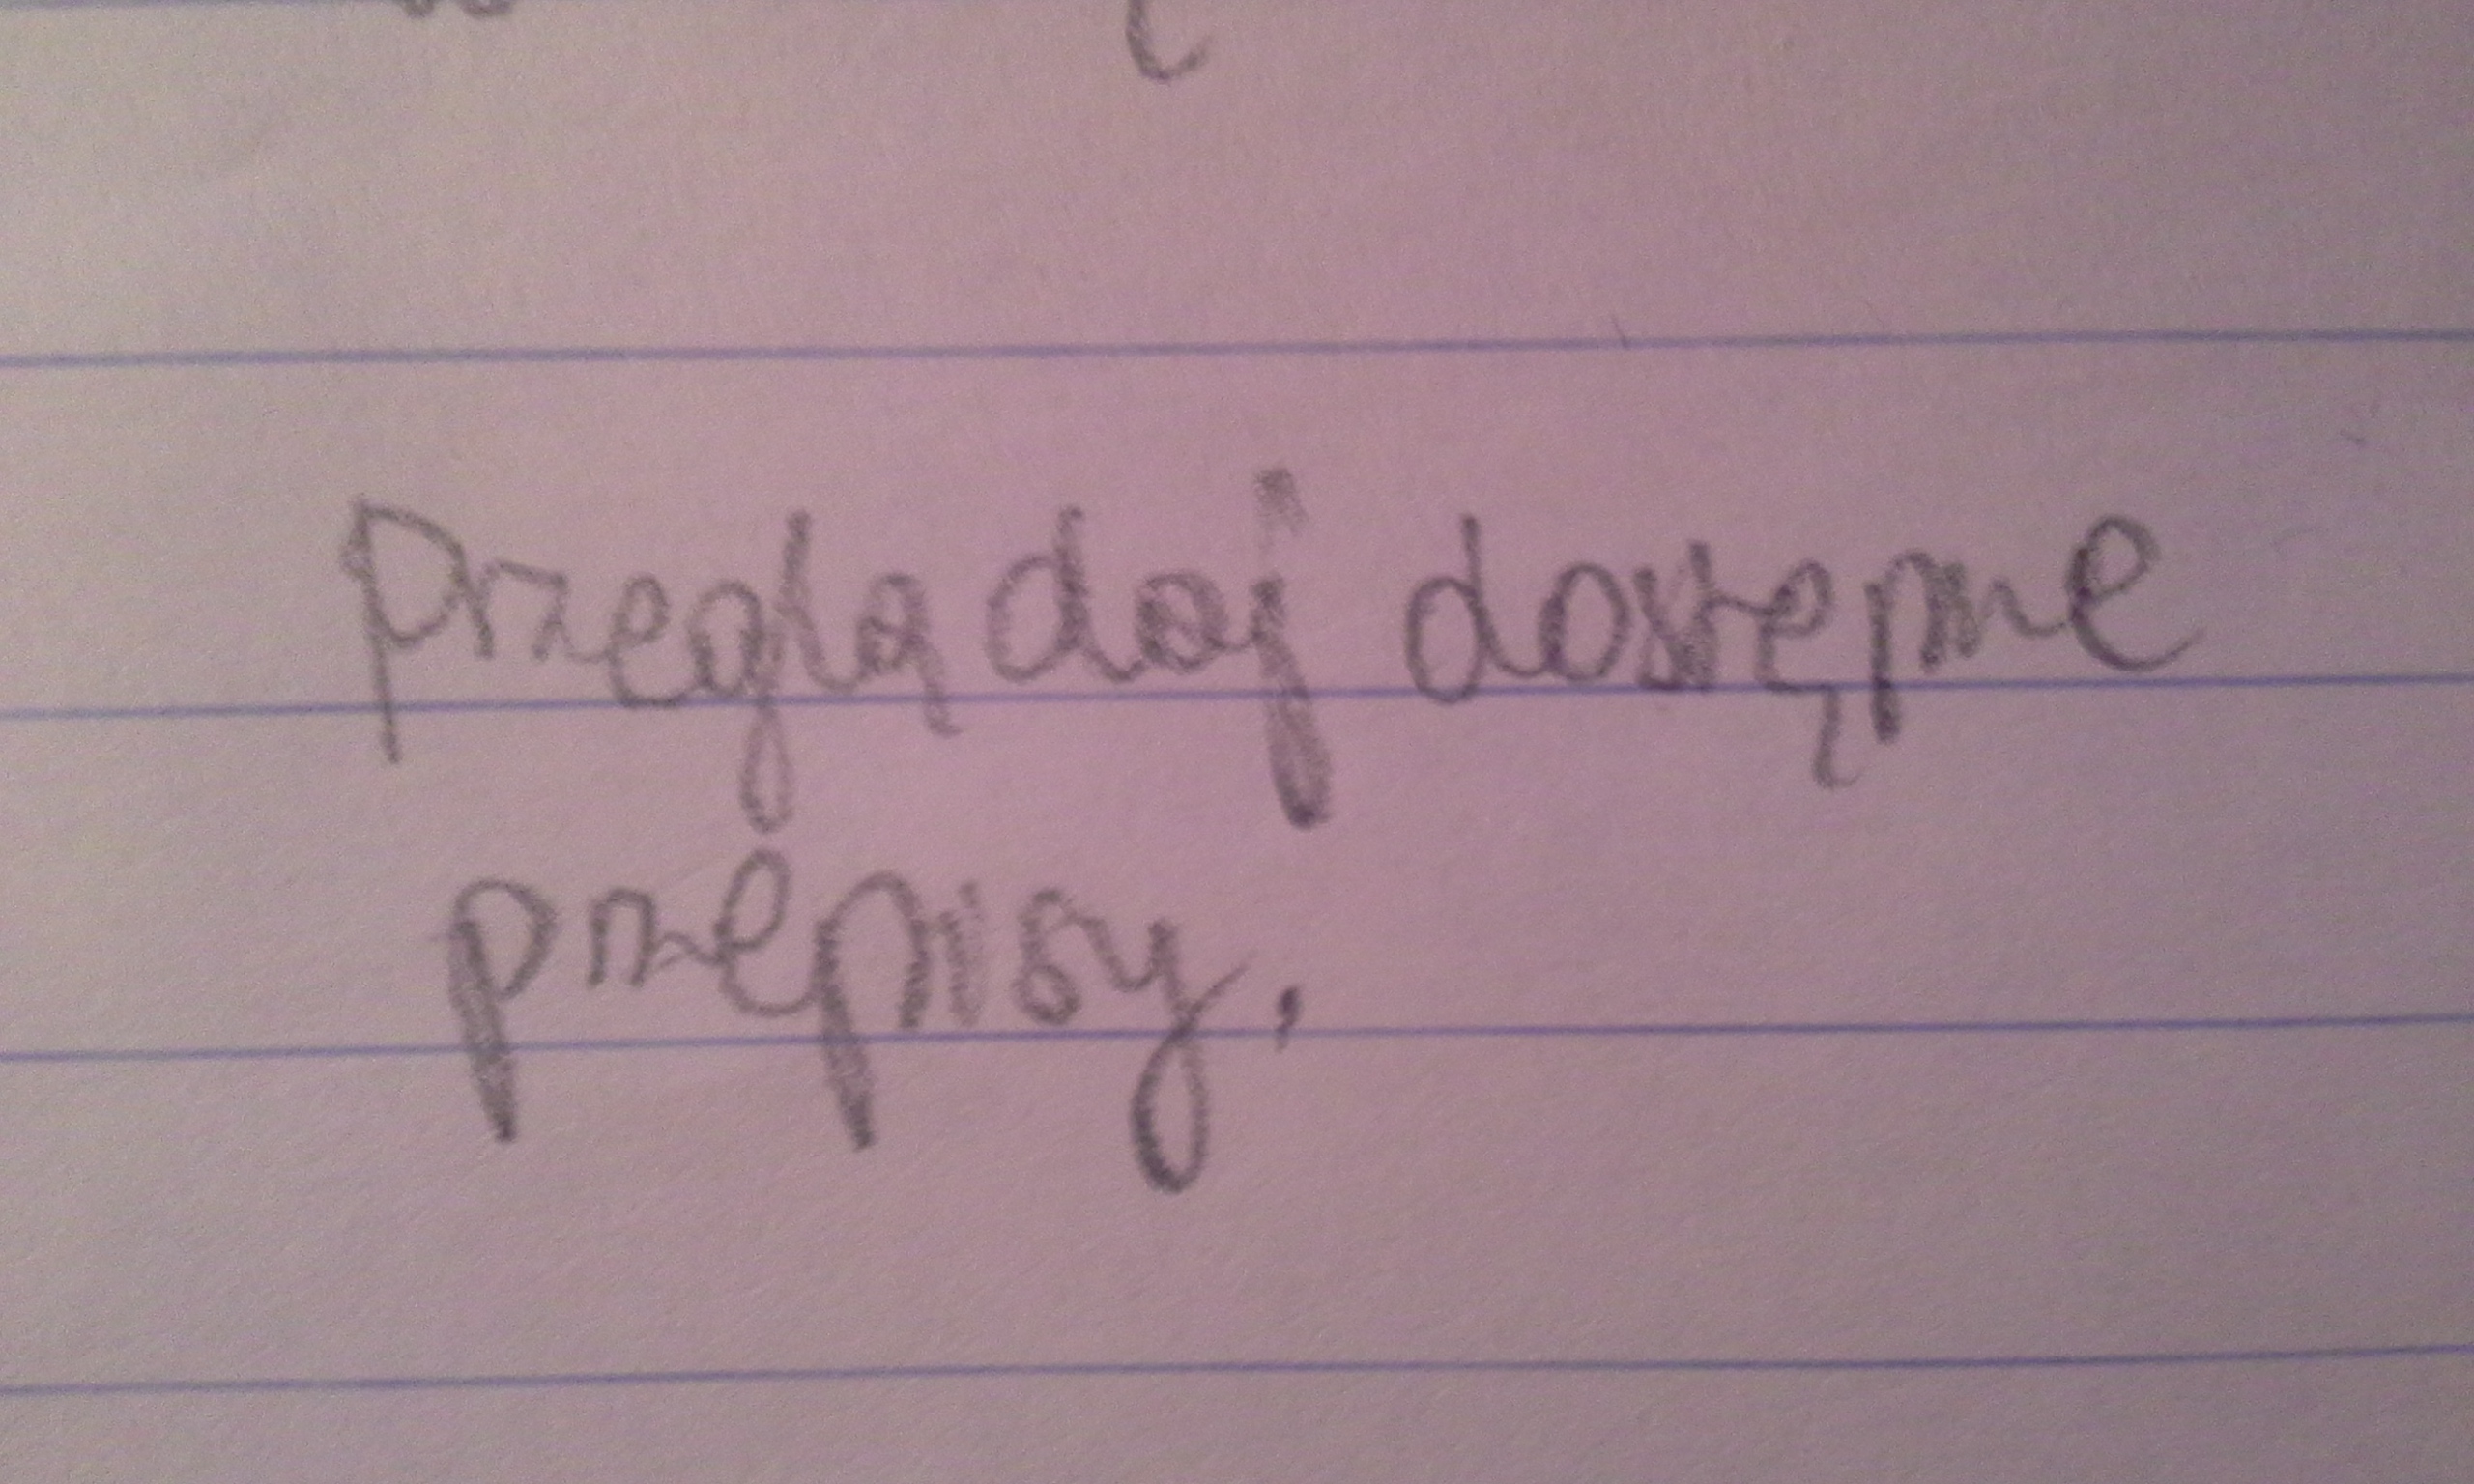 Przeglądaj dostępne
przepisy.